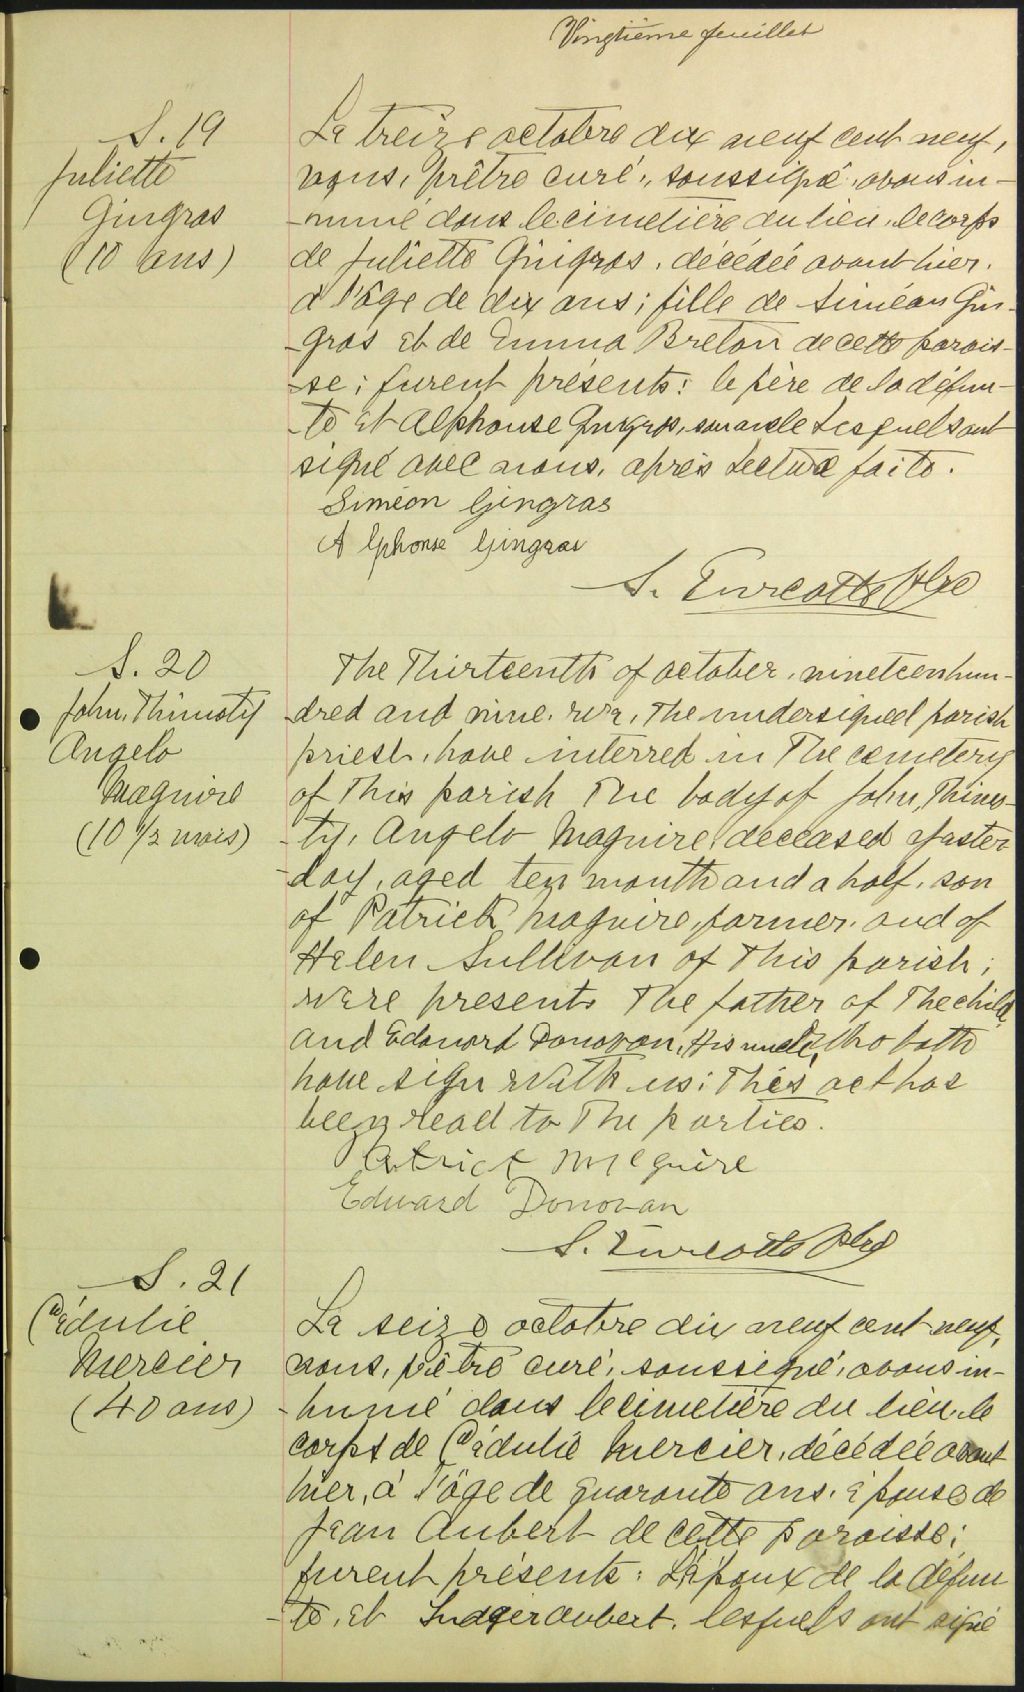 Vingtième feuillet
S. 19
Juliette
Gingras
(10 ans)
Le treize octobre dix neuf cent neuf,
nous, prêtre curé, soussigné, avons in-
-humé dans le cimetière du lieu, le corps
de Juliette Gingras, décédée avant hier,
à l'âge de dix ans; fille de Siméon Gin-
-gras et de Emma Breton de cette parois-
-se; furent présents: le père de la défun-
-te et Alphonse Gingras, son oncle lesquels ont
signé avec nous, après lecture faite.
Siméon Gingras
Alphonse Gingras
S. Turcotte Ptre
S. 20
John, Thimoty
Angelo
Maguire
(10 1/2 mois)
The Thirteenth of october, nineteen hun-
-dred and nine, we, the undersigned parish
priest, have interred in the cemetery
of this parish the body of John, Thimo-
-ty, Angelo Maguire, deceased yester
-day, aged ten month and a half, son
of Patrick Maguire, farmer, and of
Helen Sullivan of this parish;
were present, the father of the child,
and Edouard Donovan, His uncle, who both
have sign with us; this act has
been read to the parties.
Patrick McGuire
Edward Donovan
S. Turcotte Ptre
S. 21
Cédulie
Mercier
(40 ans)
Le seize octobre dix neuf cent neuf,
nous, prêtre curé, soussigné, avons in-
-humé dans le cimetière du lieu, le
corps de Cédulie Mercier, décédée avant
hier, à l'âge de quarante ans, épouse de
Jean Aubert de cette paroisse;
furent présents: L'époux de la défun
-te, et Ludger Aubert, lesquels ont signé